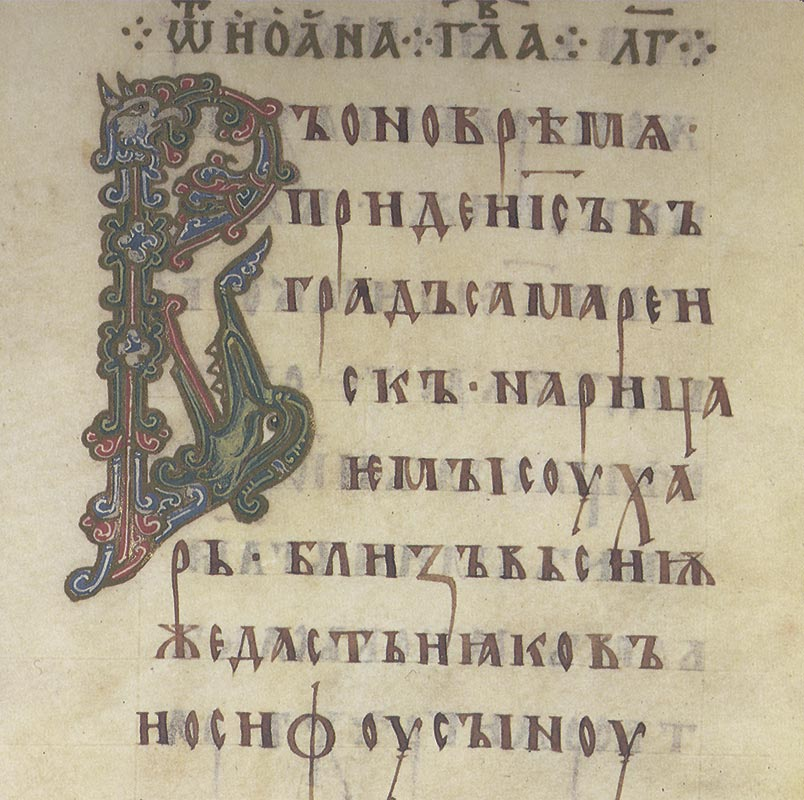 ⁘ Ѿ ИОАНА ⁘ ГЛ҃А ⁘ Л҃Г ⁘
ВЪОНОВРѢМѦ·
ПРИДЕИ҃СЪВЪ
ГРАДЪСАМАРЕИ
СКЪ·НАРИЦА
ѤМЪІСОУХА
РЬ·БЛИЗЪВЬСИѬ
ЖЕДАСТЬИꙖКОВЪ
ИОСИФОУСЪІНОУ